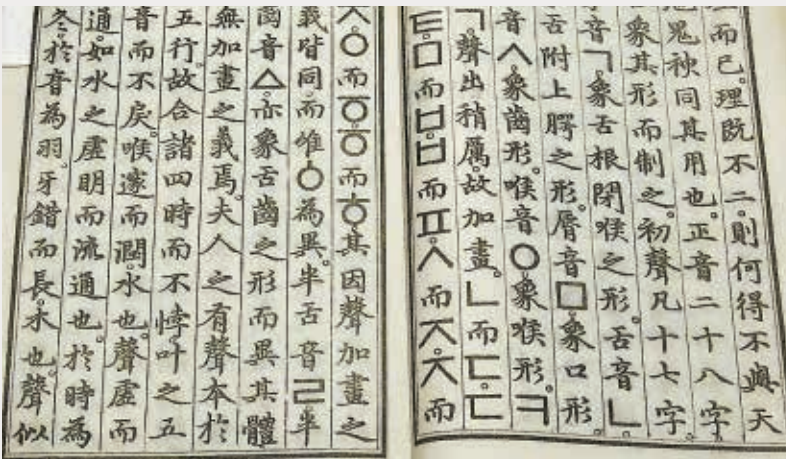 理而已。理既不二。則何得不與天
地鬼神同其用也。正音二十八字。
象其形而制之。初聲凡十七字。
音ㄱ。象舌根閉喉之形。舌音ㄴ。
舌附上腭之形。脣音ㅁ。象口形。
音ㅅ。象齒形。喉音ㅇ。象喉形。ㅋ
ㄱ。聲出稍厲。故加畫。ㄴ而ㄷ。ㄷ
ㅌ。ㅁ而ㅂ。ㅂ而ㅍ。ㅅ而ㅈ。ㅈ而
ㅊ。ㅇ而ㆆ。ㆆ而ㅎ。其因聲加畫之
義皆同。而惟ㆁ為異。半舌音ㄹ。半
齒音ㅿ。亦象舌齒之形而異其體。
無加畫之義焉。夫人之有聲本於
五行。故合諸四時而不悖。叶之五
音而不戾。喉邃而潤。水也。聲虛而
通。如水之虛明而流通也。於時為
冬。於音為羽。牙錯而長。木也。聲似